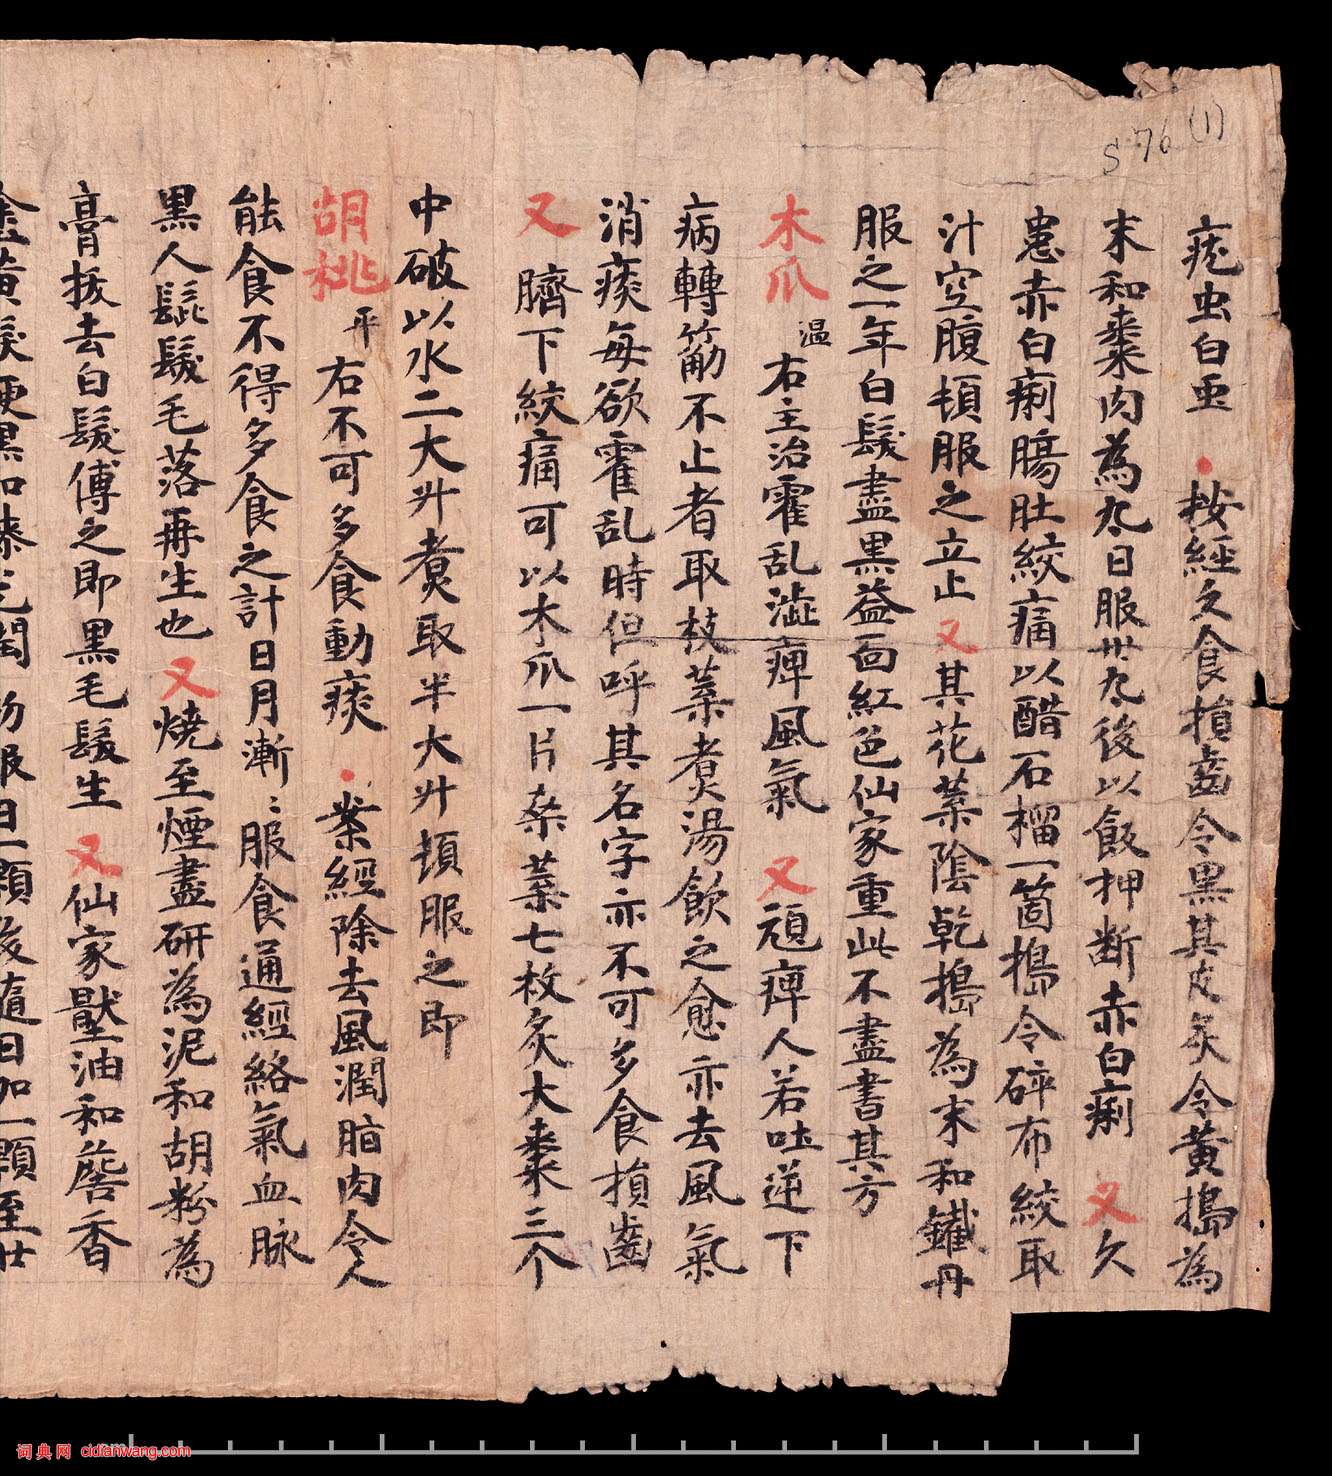 S 76 (1)
疣虫白虫 按經久食損齒令黒其皮炙令黄搗為
末和棗肉為丸日服卅丸後以飯押断赤白痢 又久
患赤白痢膓肚絞痛以醋石榴一箇搗令碎布絞取
汁空腹頓服之立止 又其花葉陰乾搗為末和鐵丹
服之一年白髮盡黒益面紅色仙家重此不盡書其方
木爪 温 右主治霍乱澁痺風氣 又頑痺人若吐逆下
病轉筋不止者取枝葉煮湯飲之愈亦去風氣
消痰每欲霍乱時但呼其名字亦不可多食損齒
又 臍下絞痛可以木爪一片桒葉七枚炙大棗三个
中破以水二大升煮取半大升頓服之即
胡桃 平 右不可多食動痰 案經除去風潤脂肉令人
能食不得多食之計日月漸〻服食通經絡氣血脉
黒人髭髮毛落再生也 又燒至煙盡研為泥和胡粉為
膏拔去白髮傅之即黒毛髮生 又仙家壓油和詹香
塗黄髮便黒如漆光閏 初服日一顆後隨日加一顆至廿
词典网 cidianwang.com